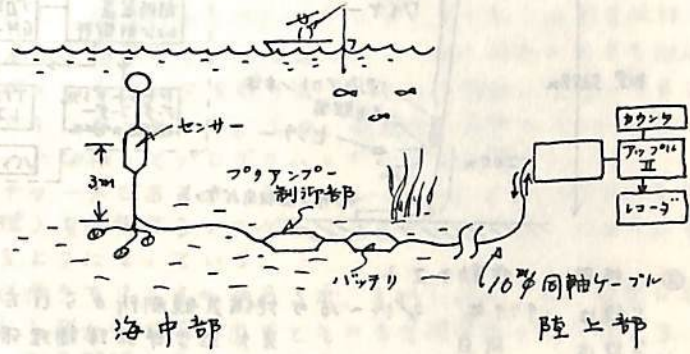 センサー
3m
プリアンプー
制御部
バッテリ
10㎜φ同軸ケーブル
カウンタ
アップル
II
レコーダ
海中部
陸上部